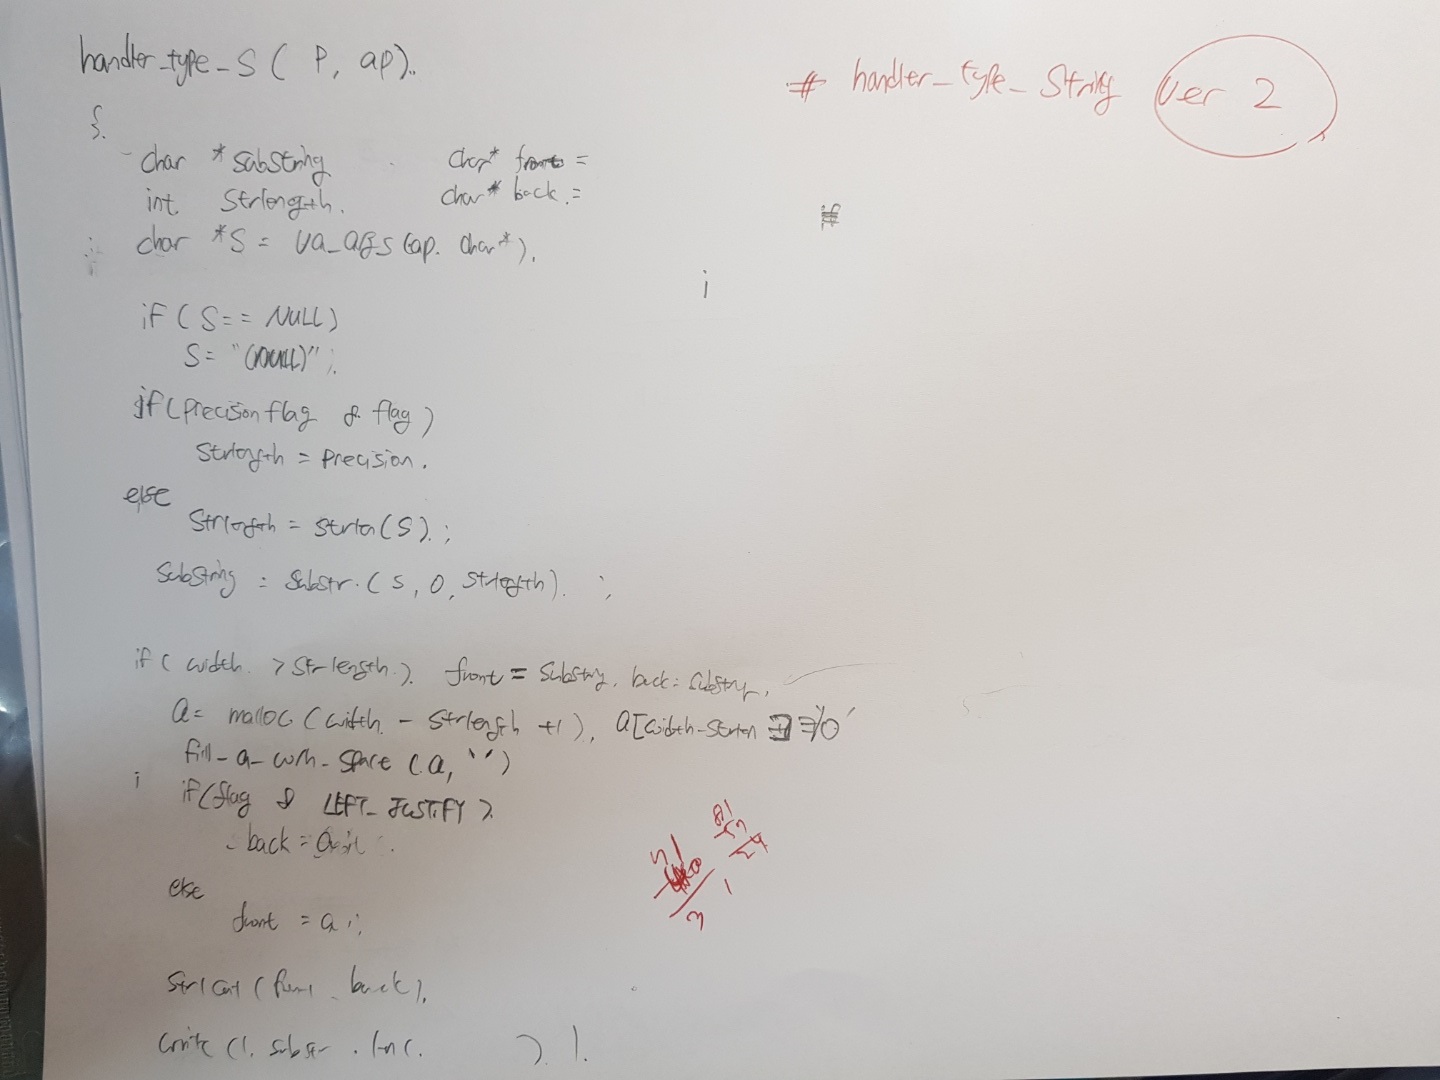 handler_type_S ( P, ap).
# handler_type_String Ver 2
{
char *Substring char* front =
int Strlength. char* back =
char *S = va_args (ap. char*).
if
i
if ( S == NULL)
S = "(NULL)";
if (precision flag & flag )
Strlength = precision.
else
Strlength = strlen(S).;
Substring = Substr.( S, 0, Strlength). ;
if ( width. > Strlength.). front = Substring. back = Substring.
a = malloc (width - Strlength +1), a[width-Strlen = '\0'
fill_a_with_space (a, ' ')
i
if (flag & LEFT_JUSTIFY ).
back = a
else
front = a ;
strlcat (front back).
write (1. substr .
81
57
24
1
3